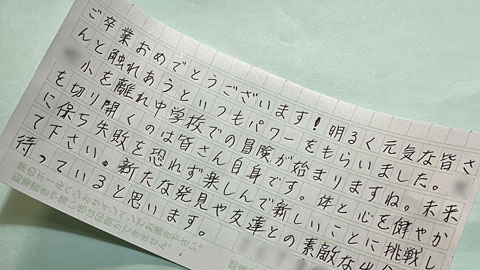 ご卒業おめでとうございます！明るく元気な皆さ
んと触れあうといつもパワーをもらいました。
小を離れ中学校での冒険が始まりますね。未来
を切り開くのは皆さん自身です。体と心を健やか
に保ち失敗を恐れず楽しんで新しいことに挑戦し
て下さい。新たな発見や友達との素敵な出会
待っていると思います。